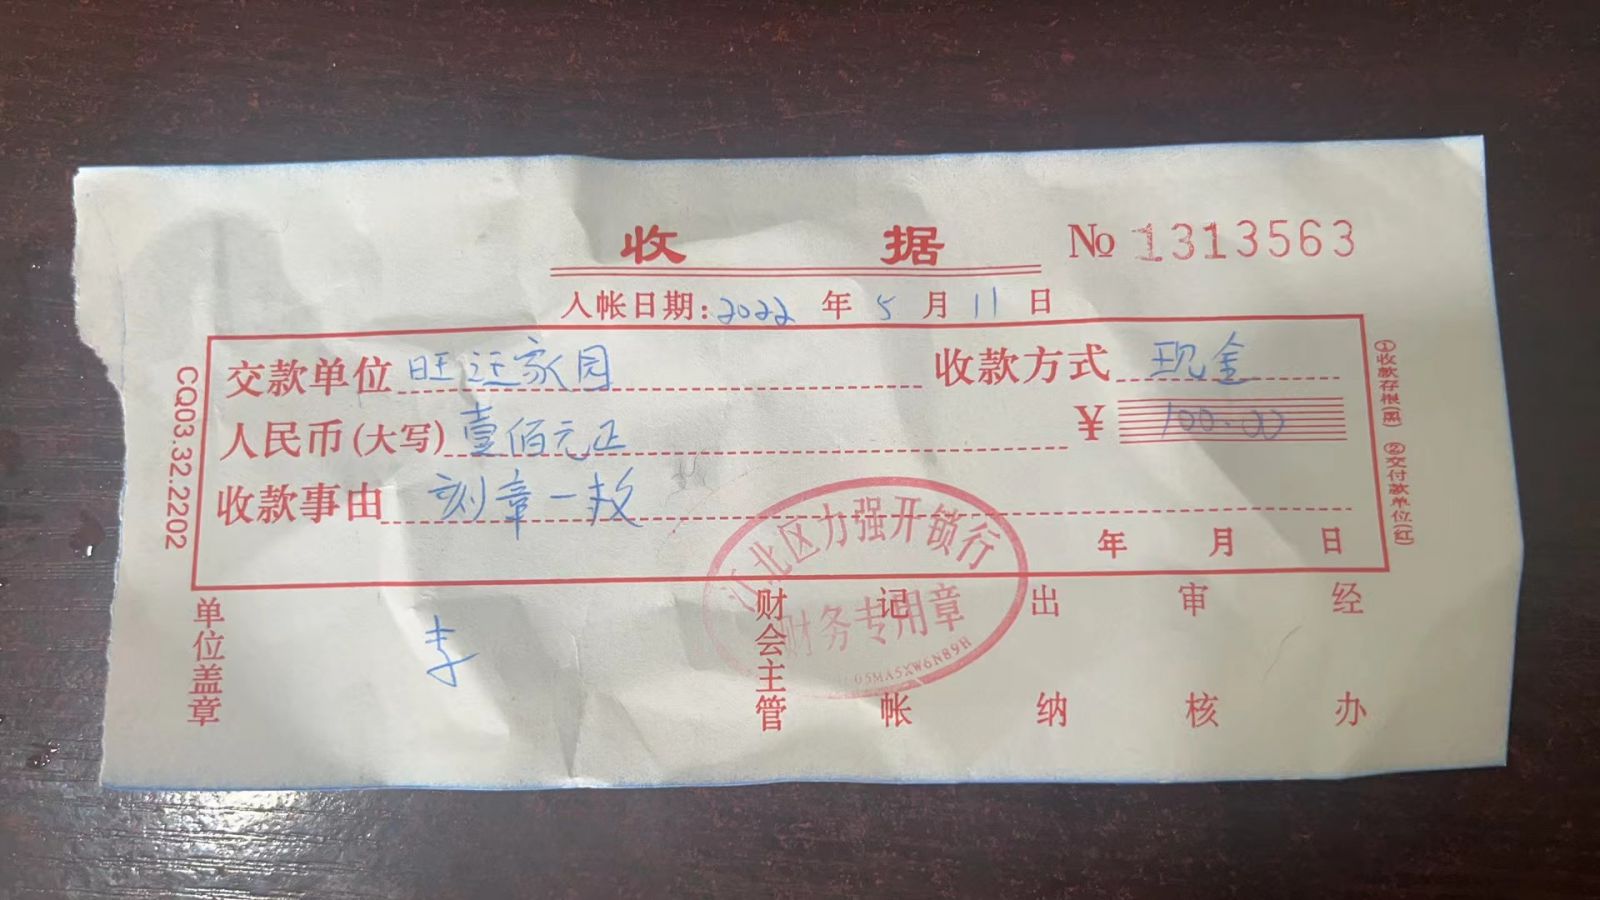 收 据 № 1313563
入帐日期:2022 年 5 月 11 日
交款单位 旺迋家园 收款方式 现金
人民币(大写) 壹佰元正 ¥ 100.00
收款事由 刻章一枚
年 月 日
CQ03.32.2202
①收款存根(黑) ②交付款单位(红)
江北区力强开锁行
财务专用章
05MA5XW6N89H
单位盖章 李 财会主管 记帐 出纳 审核 经办